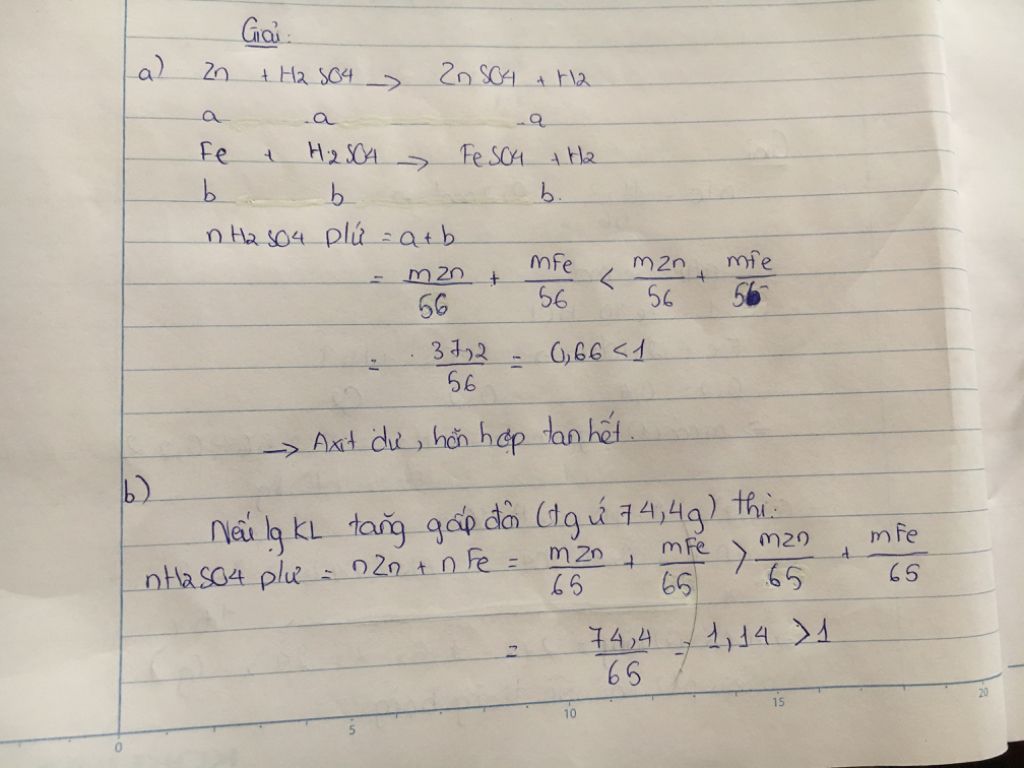 Giải:
a) Zn + H2SO4 → ZnSO4 + H2
a a a
Fe + H2SO4 → FeSO4 + H2
b b b.
nH2SO4 p/ứ = a+b
= mZn/56 + mFe/56 < mZn/56 + mFe/56
= 37,2/56 = 0,66 < 1
→ Axit dư, hỗn hợp tan hết.
b)
Nếu lg KL tăng gấp đôi (tg ứ 74,4g) thì:
nH2SO4 p/ứ = nZn + nFe = mZn/65 + mFe/65 > mZn/65 + mFe/65
= 74,4/65 = 1,14 > 1
0 5 10 15 20